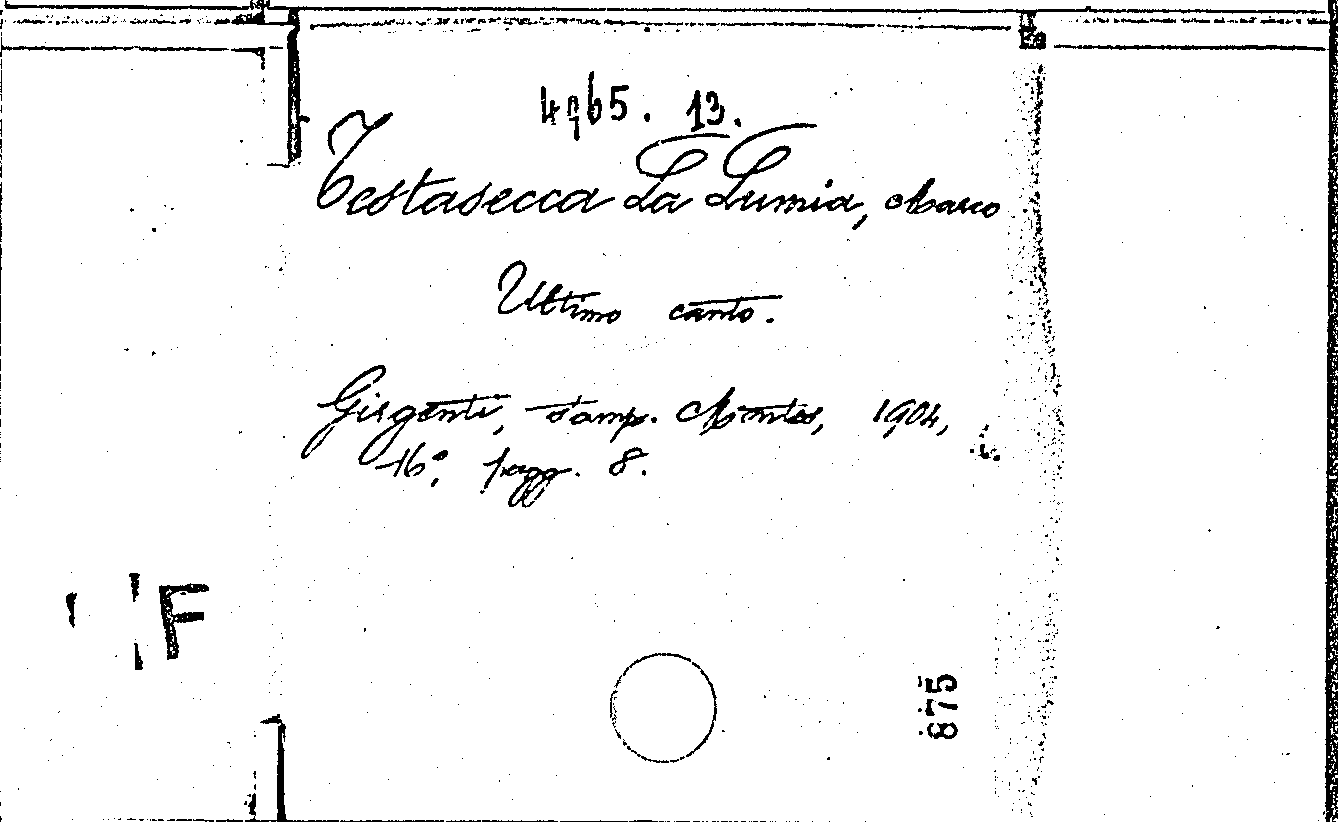 4965. 13.
Testasecca La Lumia, Marco
Ultimo canto.
Girgenti, stamp. Montes, 1904,
16°. pagg. 8.
875
F